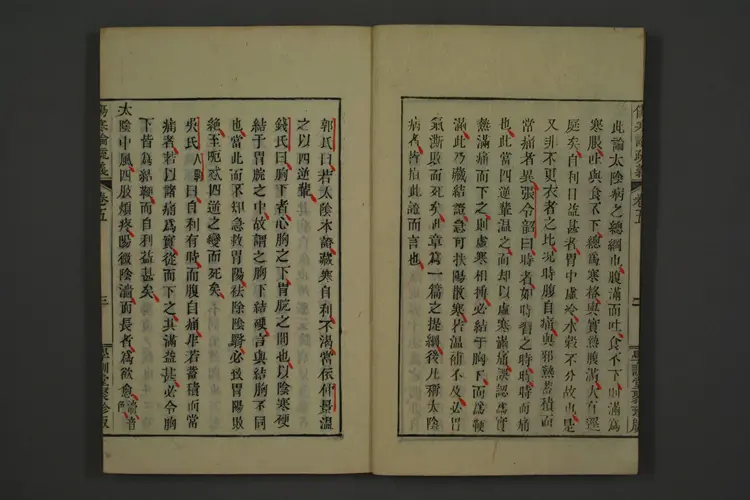 此論太陰病之總綱也腹滿而吐食不下則滿為
寒脹吐與食不下總為寒格與實熱腹滿大有逕
庭矣自利日益甚者胃中虛冷水穀不分故也是
又非不更衣者之比況時腹自痛與邪熱蓄積而
當痛者異張令韶曰時者如時習之時時時而痛
也此當四逆輩溫之而却以虛寒滿痛誤認為實
熱滿痛而下之則虛寒相搏必結于胸下而為鞕
滿此乃臟結證急可扶陽散寒若溫補不及必胃
氣澌敗而死矣此章為一篇之提綱後凡稱太陰
病者皆指此證而言也
傷寒論疏義
卷五
二
郭氏曰若太陰本證藏寒自利不渴當依仲景溫
之以四逆輩
錢氏曰胸下者心胸之下胃脘之間也以陰寒硬
結于胃脘之中故謂之胸下結硬言與結胸不同
也當此而不知急救胃陽祛除陰翳必致胃陽敗
絕至呃忒四逆之變而死矣
吳氏人駒曰自利有時而腹自痛非若蓄積而常
痛者若以諸痛為實從而下之其滿益甚必令胸
下皆為結鞕而自利益甚矣
太陰中風四肢煩疼陽微陰濇而長者為欲愈濇音色
傷寒論疏義
卷五
三